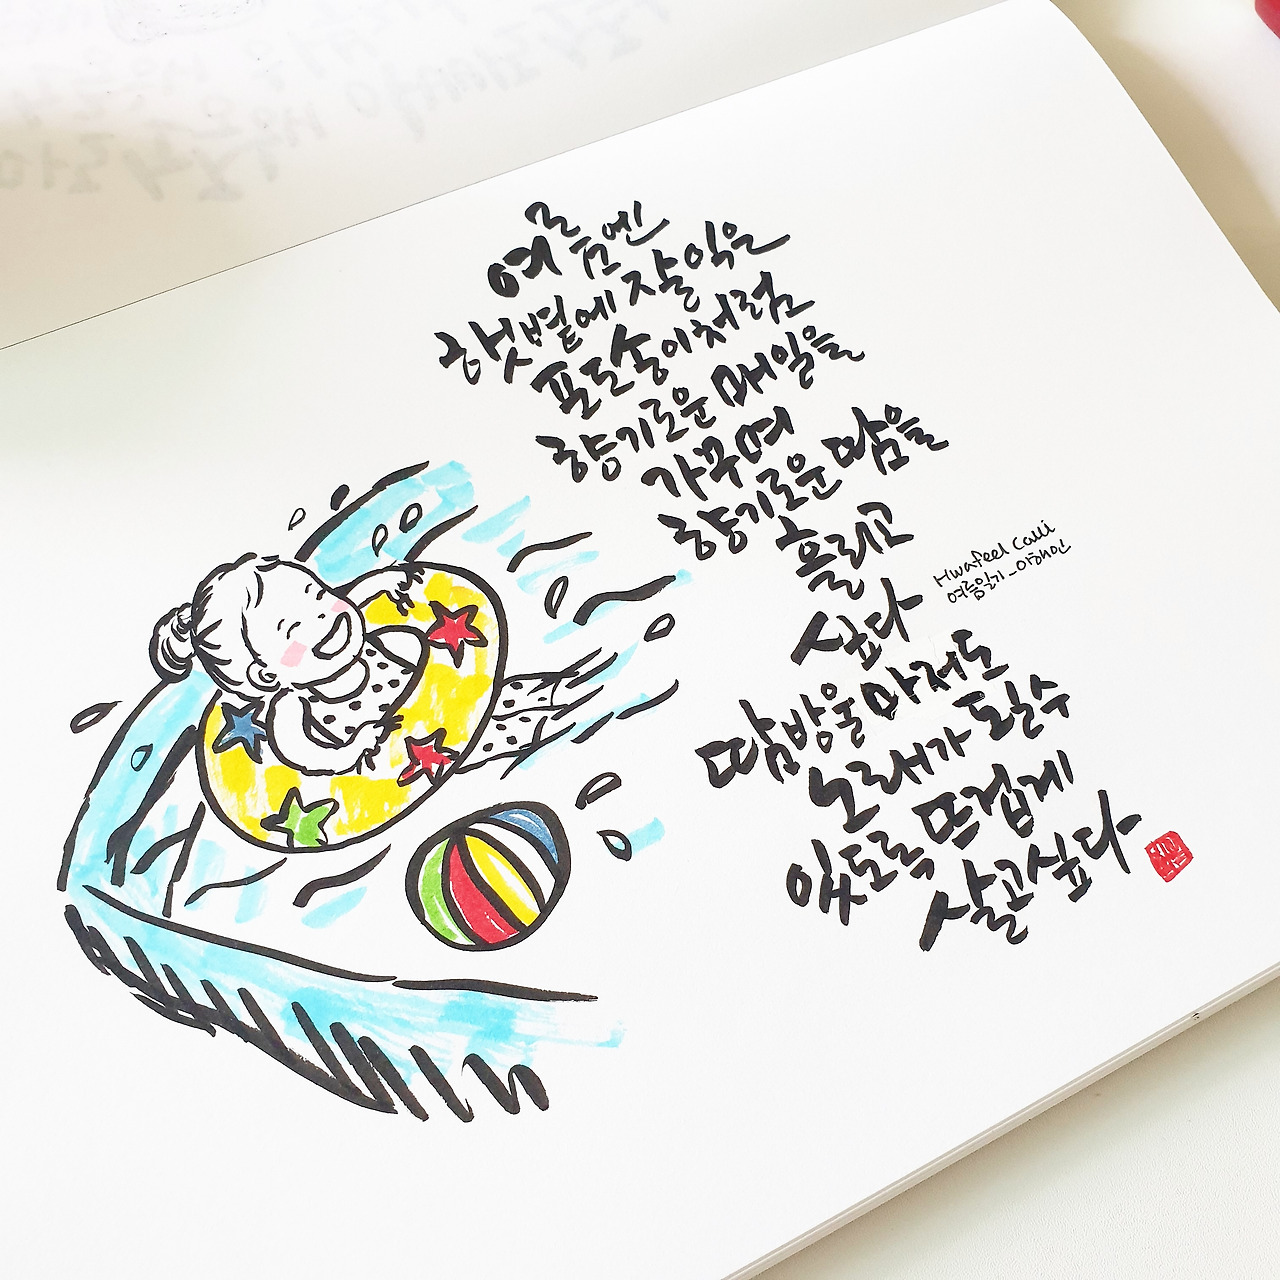 여름엔
햇볕에 잘 익은
포도송이처럼
향기로운 매일을
가꾸며
향기로운 땀을
흘리고
싶다
땀방울마저도
노래가 될 수
있도록 뜨겁게
살고 싶다
Hwafeel Calli
여름일기_이해인